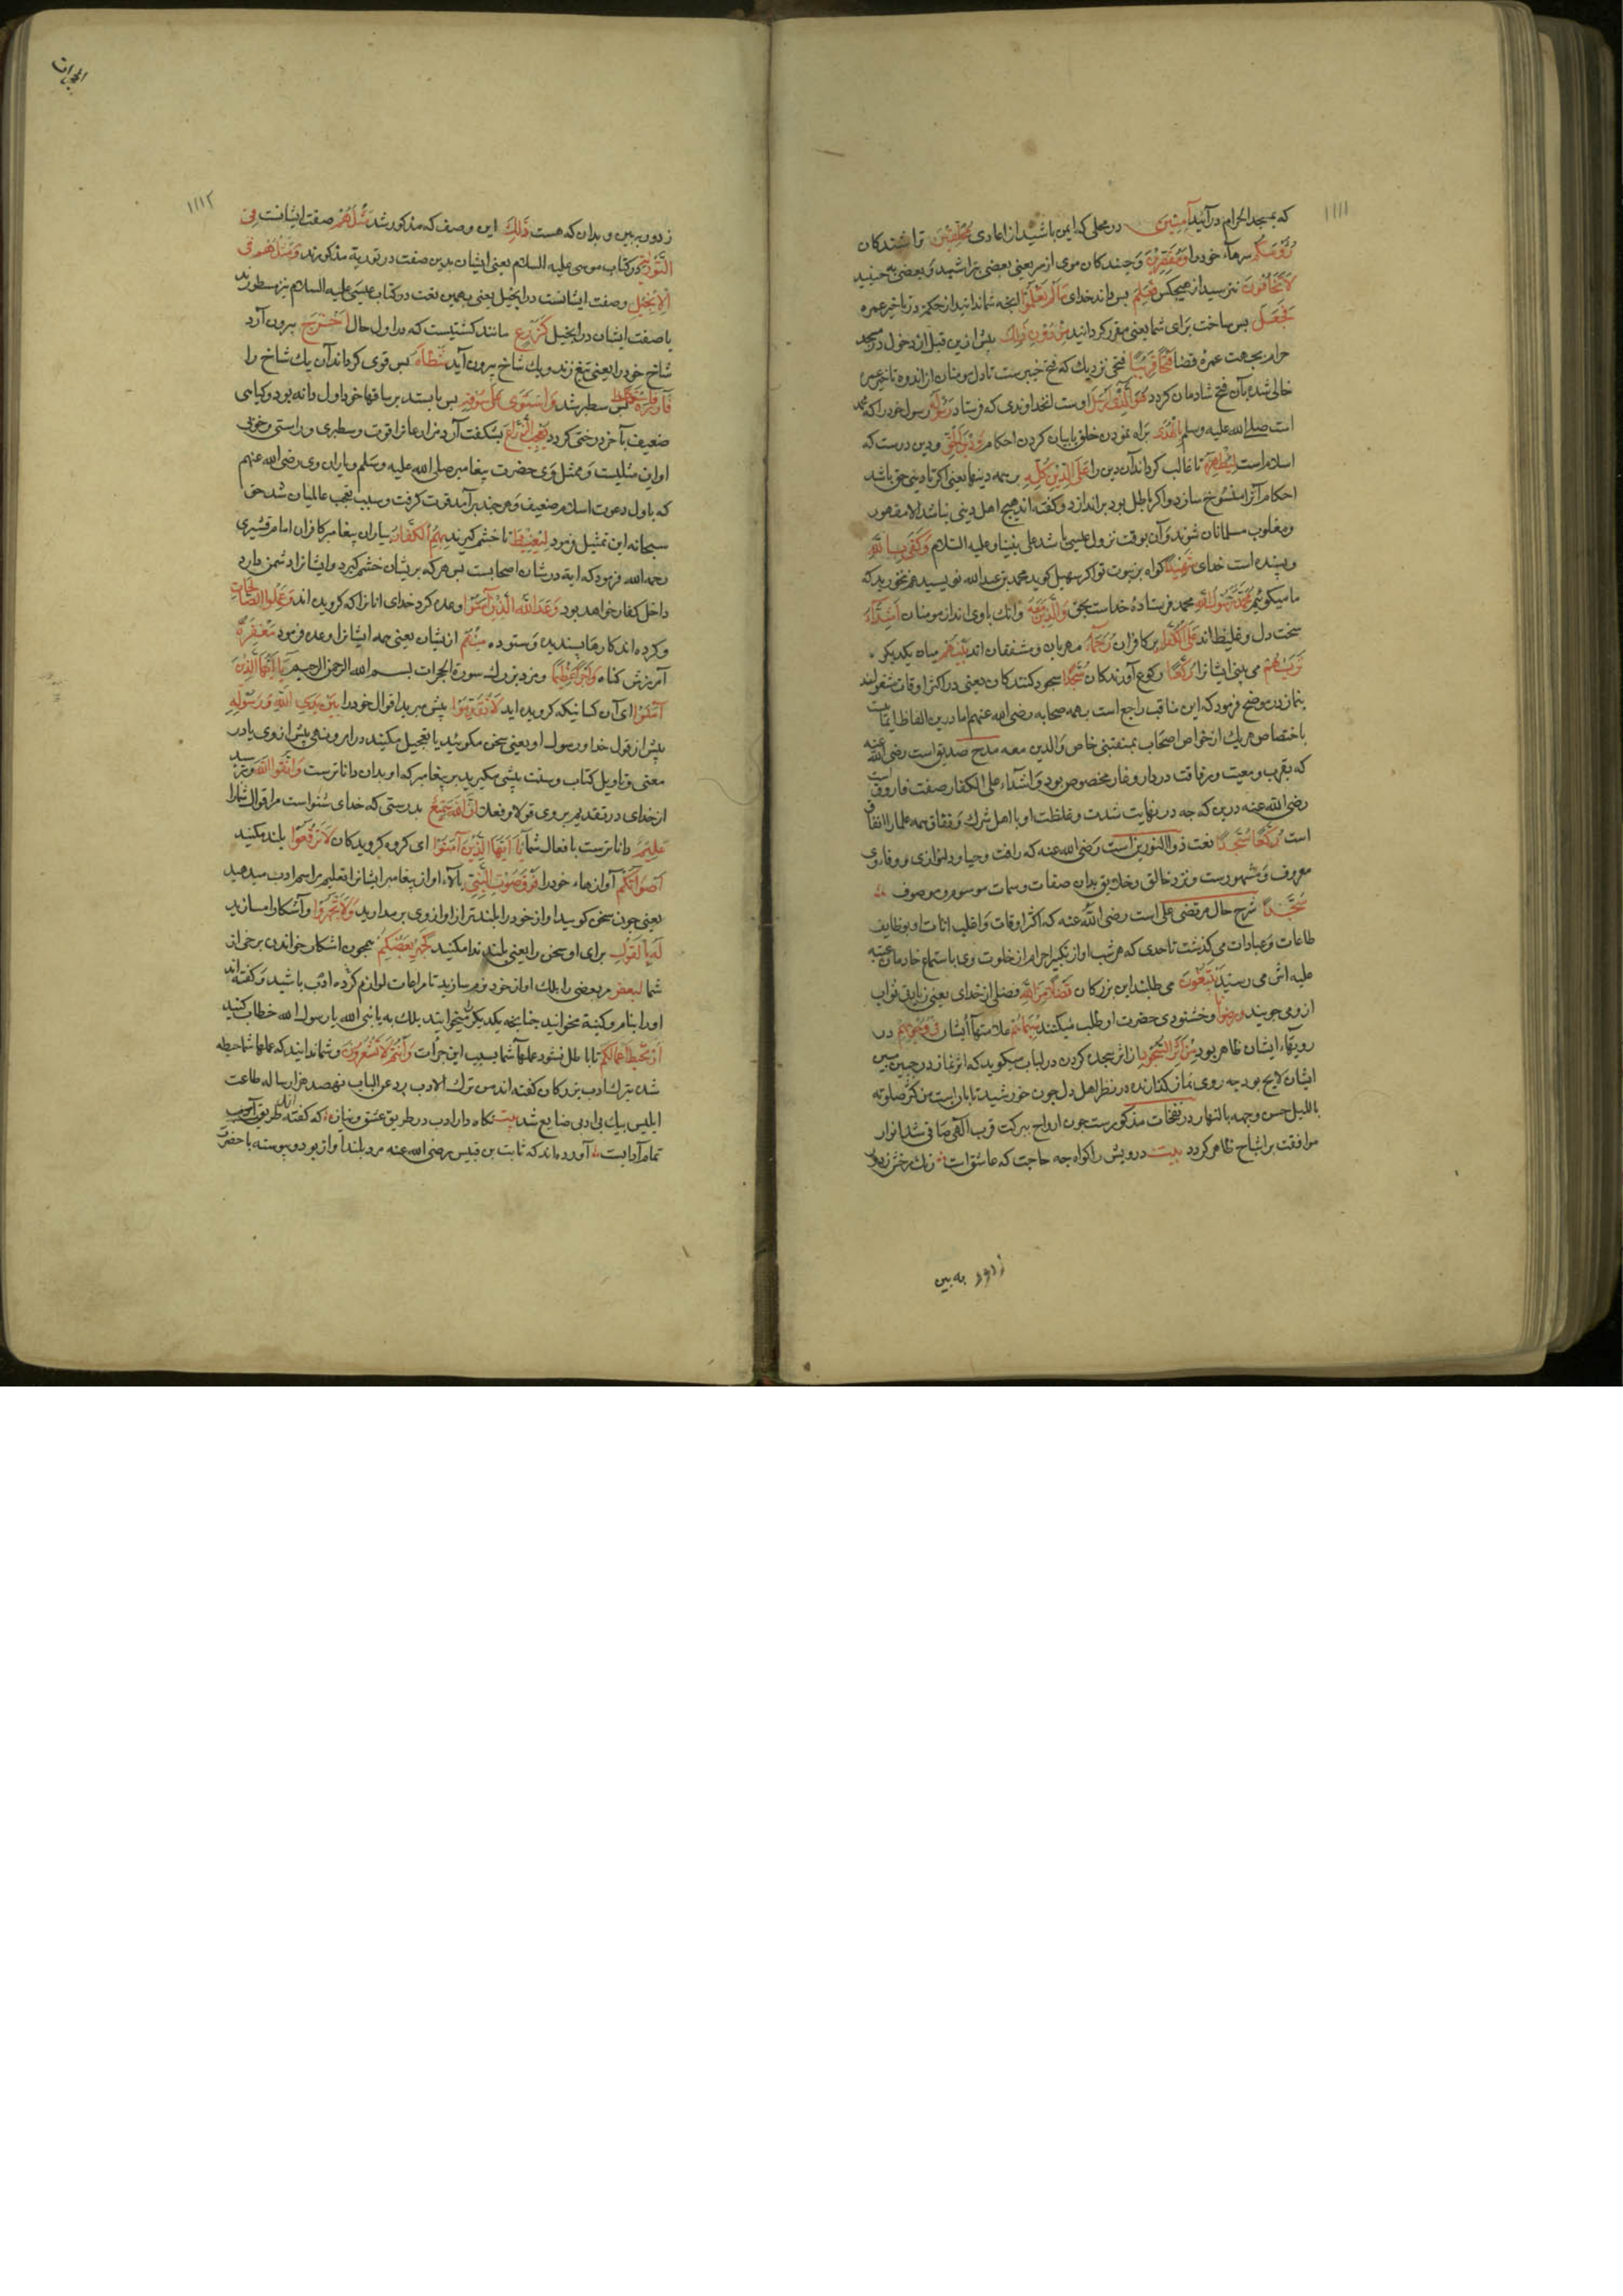 ۱۱۱۱
که بمسجد الحرام درآئید آمِنِینَ در محلی که ایمن باشید از اعادی مُحَلِّقِینَ تراشندکان
رُؤُسَکُمْ سرهاء خود را وَمُقَصِّرِینَ و چیندکان موی از سر یعنی بعضی بتراشید و بعضی به چینید
لَا تَخَافُونَ نترسید از هیچکس فَعَلِمَ پس داند خدای مَا لَمْ تَعْلَمُوا انچه شما ندانید از حکمه در تاخیر عمره
فَجَعَلَ پس ساخت برای شما یعنی مقرر کردانید مِنْ دُونِ ذٰلِكَ پیش ازین قبل از دخول در مسجد
حرام بجهت عمرهٔ قضا فَتْحًا قَرِیبًا فتحی نزدیك که فتح خیبرست تا دل مومنان از اندوه تاخیر عمره
خالی شده بآن فتح شادمان کردد هُوَ الَّذِی اَرْسَلَ اوست انخداوندی که فرستاد رَسُولَهُ رسول خود را که محمد
است صلی الله علیه وسلم بِالْهُدٰی براه نمودن خلق با بیان کردن احکام وَدِینِ الْحَقِّ و دین درست که
اسلام است لِیُظْهِرَهُ تا غالب کرداند آن دین را عَلَی الدِّینِ کُلِّهِ بر همه دینها یعنی اکر تا دینی حق باشد
احکام آنرا منسوخ سازد و اکر باطل بود براندازد و کفته اند هیچ اهل دینی نباشد الا مقهور
و مغلوب مسلمانان شوند و آن بوقت نزول عیسی باشد علی نبینا و علیه السلام وَکَفٰی بِاللهِ
و بسنده است خدای شَهِیدًا کواه بر نبوت تو اکر سهیل کوید محمد بن عبدالله نویسید هم نخورید که
ما میکوئیم مُحَمَّدٌ رَسُولُ اللهِ محمد فرستادهٔ خداست بحق وَالَّذِینَ مَعَهُ وانك باوی اند از مومنان اَشِدَّآءُ
سخت دل و غلیظ اند عَلَی الْکُفَّارِ بر کافران رُحَمَآءُ مهربان و مشفقان اند بَیْنَهُمْ میان یکدیکر
تَرٰیهُمْ می بینی ایشانرا رُکَّعًا رکوع آورندکان سُجَّدًا سجود کنندکان یعنی در اکثر اوقات مشغولند
بنماز در موضح فرمود که این مناقب راجع است بهمه صحابه رضی الله عنهم اما درین الفاظ ایمائیست
باختصاص هریك از خواص اصحاب بمنقبتی خاص والذین معه مدح صدیق است رضی الله عنه
که بقرب و معیت و مرافقت در دار و غار مخصوص بود و اشداء علی الکفار صفت فاروق است
رضی الله عنه درین که چه در نهایت شدت و غلظت او با اهل شرك و نفاق همه علما را اتفاق
است رُکَّعًا سُجَّدًا نعت ذو النورین است رضی الله عنه که رافت و حیا و دلنوازی و وفا وی
معروف و مشهورست و نزد خالق و خلایق بدان صفات و سمات موسوم و موصوف
سُجَّدًا شرح حال مرتضی علی است رضی الله عنه که اکثر اوقات و اغلب انات او بوظایف
طاعات و عبادات می کذشت تا حدی که هر شب اواز تکبیر احرام از خلوت وی باستماع خادمان عتبه
علیه اش می رسید یَبْتَغُونَ می طلبند این بزرکان فَضْلًا مِنَ اللهِ فضلی از خدای یعنی زیادتی ثواب
ازو می جویند وَرِضْوَانًا وخشنودی حضرت او طلب میکنند سِیمَاهُمْ علامتهآ ایشان فِی وُجُوهِهِمْ در
رویهاء ایشان ظاهر بود مِنْ اَثَرِ السُّجُودِ از اثر سجده کردن در لباب میکوید که اثر نماز در جبین مبین
ایشان لایح بود چه روی نماز کذارنده در نظر اهل دل چون خورشید تابان است من کثر صلوته
باللیل حسن وجهه بالنهار در نفحات مذکورست چون ارواح ببرکت قرب الهی صافی شد انوار
موافقت بر اشباح ظاهر کردد بیت درویش را کواه چه حاجت که عاشق است رنك رخش ز دور
ز دور به بین
الحجرات
۱۱۱۲
ز دور به بین و بدان که هست ذٰلِكَ این وصف که مذکور شد مَثَلُهُمْ صفت ایشانست فِی
التَّوْرٰیةِ در کتاب موسی علیه السلام یعنی ایشان بدین صفت در توریة مذکورند وَمَثَلُهُمْ فِی
الْاِنْجِیلِ وصفت ایشانست در انجیل یعنی بهمین نعت در کتاب عیسی علیه السلام نیز مسطورند
یا صفت ایشان در انجیل کَزَرْعٍ مانند کشتیست که در اول حال اَخْرَجَ بیرون آرد
شاخ خود را یعنی تیغ زند و یك شاخ بیرون آید شَطْاَهُ پس قوی کرداند آن یك شاخ را
فَآزَرَهُ فَاسْتَغْلَظَ پس سطبر شد فَاسْتَوٰی عَلٰی سُوقِهِ پس بایستد بر ساقها خود اول دانه بود و کیاهی
ضعیف بآخر درختی کردد یُعْجِبُ الزُّرَّاعَ بشکفت آرد مزارعانرا قوت و سطبری و راستی و خوبی
او این مثلیست و ممثل وی حضرت پیغامبر صلی الله علیه وسلم و یاران وی رضی الله عنهم
که باول دعوت اسلام ضعیف و هرچند برآمد قوت کرفت و سبب تعجب عالمیان شد حق
سبحانه این تمثیل فرمود لِیَغِیظَ تا خشم کیرند بِهِمُ الْکُفَّارَ بیاران پیغامبر کافران امام قشیری
رحمه الله فرمود که ایة در شان اصحابست پس هرکه بریشان خشم کیرد و ایشانرا دشمن دارد
داخل کفار خواهد بود وَعَدَ اللهُ الَّذِینَ آمَنُوا وعده کرد خدای انانرا که کرویده اند وَعَمِلُوا الصَّالِحَاتِ
و کرده اند کارهاء پسندیده و ستوده مِنْهُمْ ازیشان یعنی همه ایشانرا وعده فرمود مَغْفِرَةً
آمرزش کناه وَاَجْرًا عَظِیمًا و مزد بزرك سورة الحجرات بسم الله الرحمن الرحیم یَا اَیُّهَا الَّذِینَ
آمَنُوا ای آن کسانیکه کرویده اید لَا تُقَدِّمُوا پیش مبرید اقوال خود را بَیْنَ یَدَیِ اللهِ وَرَسُولِهِ
پیش از قول خدا و رسول او یعنی سخن مکوئید یا تعجیل مکنید در امر و نهی پیش از وی یا در
معنی و تاویل کتاب و سنت پیشی مکیرید بر پیغامبر که او بدان داناترست وَاتَّقُوا اللهَ و بترسید
از خدای در تقدیم بر وی قولا و فعلا اِنَّ اللهَ سَمِیعٌ بدرستی که خدای شنواست مر اقوال شما را
عَلِیمٌ داناترست با فعال شما یَا اَیُّهَا الَّذِینَ آمَنُوا ای کروه کرویدکان لَا تَرْفَعُوا بلند مکنید
اَصْوَاتَکُمْ آوازهاء خود را فَوْقَ صَوْتِ النَّبِیِّ بالاء اواز پیغامبر ایشانرا تعلیم مراسم ادب میدهد
یعنی چون سخن کویید اواز خود را بلندتر از اواز وی برمدارید وَلَا تَجْهَرُوا و آشکارا مسازید
لَهُ بِالْقَوْلِ برای او سخن را یعنی بلند ندا مکنید کَجَهْرِ بَعْضِکُمْ همچون اشکار خواندن برخی از
شما لِبَعْضٍ مر بعضی را بلك اواز خود نرم سازید تا مراعات لوازم ادب کرده باشید و کفته اند
او را بنام و کنیة مخوانید چنانچه یکدیکر را میخوانید بلك به یا نبی الله یا رسول الله خطاب کنید
اَنْ تَحْبَطَ اَعْمَالُکُمْ تا باطل نشود عملهآ شما بسبب این جرأت وَاَنْتُمْ لَا تَشْعُرُونَ و شما ندانید که عملها شما حبطه
شده بترك ادب بزرکان کفته اند من ترك الادب رد عن الباب نهصد هزار ساله طاعت
ابلیس بیك بی ادبی ضایع شد بیت نکاه دار ادب در طریق عشق و نیاز که کفته اند طریق ادب
تمام آدابست آورده اند که ثابت بن قیس رضی الله عنه مرد بلند اواز بود و پیوسته با حضرت